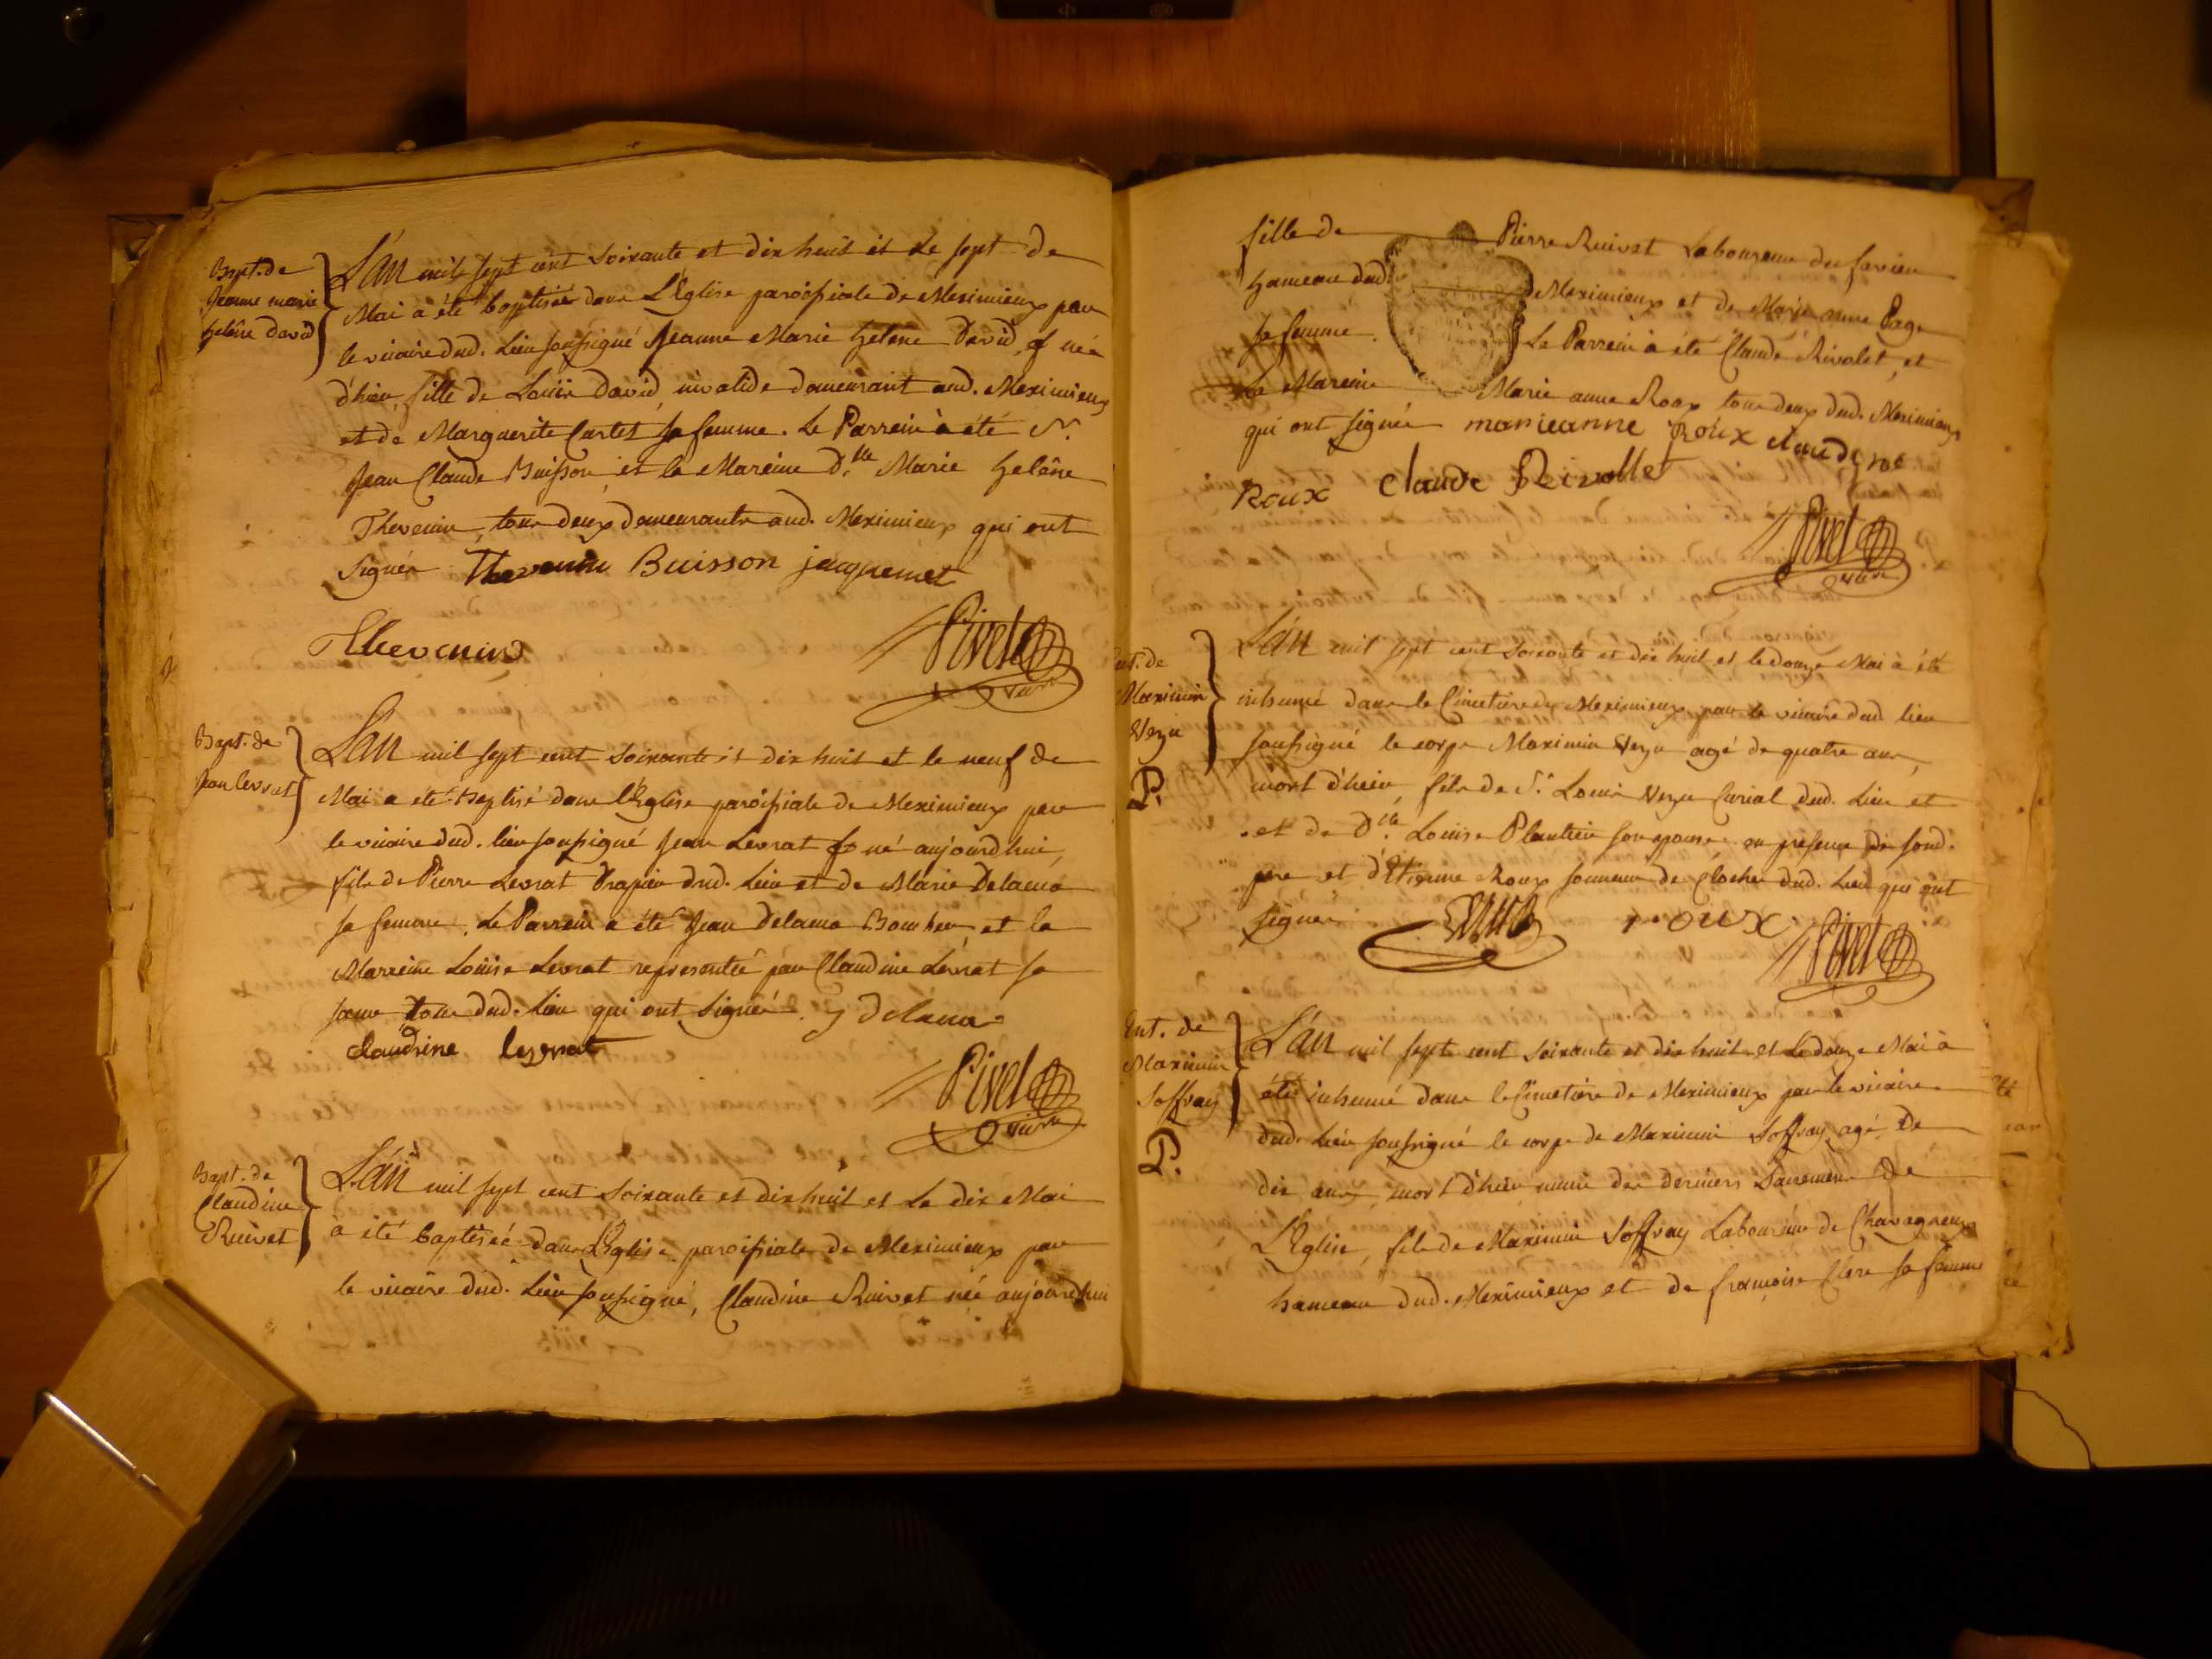 Bapt. de
Jeanne marie
helêne david
L'án mil sept cent soixante et dix huit et le sept de
Mai à été baptisée dans L'Eglise paroissiale de Meximieux par
le vicaire dud. Lieu soussigné Jeanne Marie helene David née
d'hier, fille de Louis David, invalide demeurant aud. Meximieux
et de Marguerite Cartet sa femme. Le Parrein à été S.
Jean Claude Buisson et la Mareine D.lle Marie helêne
Thevenin, tous deux demeurants aud. Meximieux qui ont
signés Thevenin Buisson jacquemet
Thevenin
Pivet
vicaire
Bapt. de
Jean levrat
L'an mil sept cent soixante et dix huit et le neuf de
Mai a été baptisé dans l'Eglise paroissiale de Meximieux par
le vicaire dud. lieu soussigné Jean Levrat né aujourd'hui,
fils de Pierre Levrat Drapier dud. Lieu et de Marie Delama
sa femme. Le Parrein a été Jean Delama Boucher et la
Marreine Louise Levrat representée par Claudine Levrat sa
soeur tous dud. Lieu qui ont signés. J Delama
claudine levrat
Pivet
vicaire
Bapt. de
Claudine
Ruivet
L'án mil sept cent soixante et dix huit et le dix Mai
a été baptisée dans L'Eglise paroissiale de Meximieux par
le vicaire dud. Lieu soussigné, Claudine Ruivet née aujourd'hui
fille de Pierre Ruivet Laboureur du
hameau dud. de Meximieux et de Marie anne Page
sa femme. Le Parrein à été Claude Rivolet, et
La Mareine Marie anne Roux tous deux dud. Meximieux
qui ont signés marieanne Roux claudine
Roux claude Rivollet
Pivet
vicaire
Ent. de
Maximin
P.
L'án mil sept cent soixante et dix huit et le douze Mai à été
inhumé dans le Cimetiere de Meximieux par le vicaire dud. lieu
soussigné le corps Maximin agé de quatre ans,
mort d'hier, fils de S.r Louis Curial dud. Lieu et
et de D.lle Louise Plantier son epouse en presence de sond.
pere et d'Etienne Roux sonneur de Cloches dud. Lieu qui ont
signés roux
Pivet
Ent. de
Maximin
Soffray
P.
L'án mil sept cent soixante et dix huit et le douze Mai à
été inhumé dans le Cimetiere de Meximieux par le vicaire
dud. Lieu soussigné le corps de Maximin Soffray agé de
dix ans, mort d'hier muni des derniers Sacremens de
L'Eglise, fils de Maximin Soffray Laboureur de Chavagneux
hameau dud. Meximieux et de françoise Clere sa femme